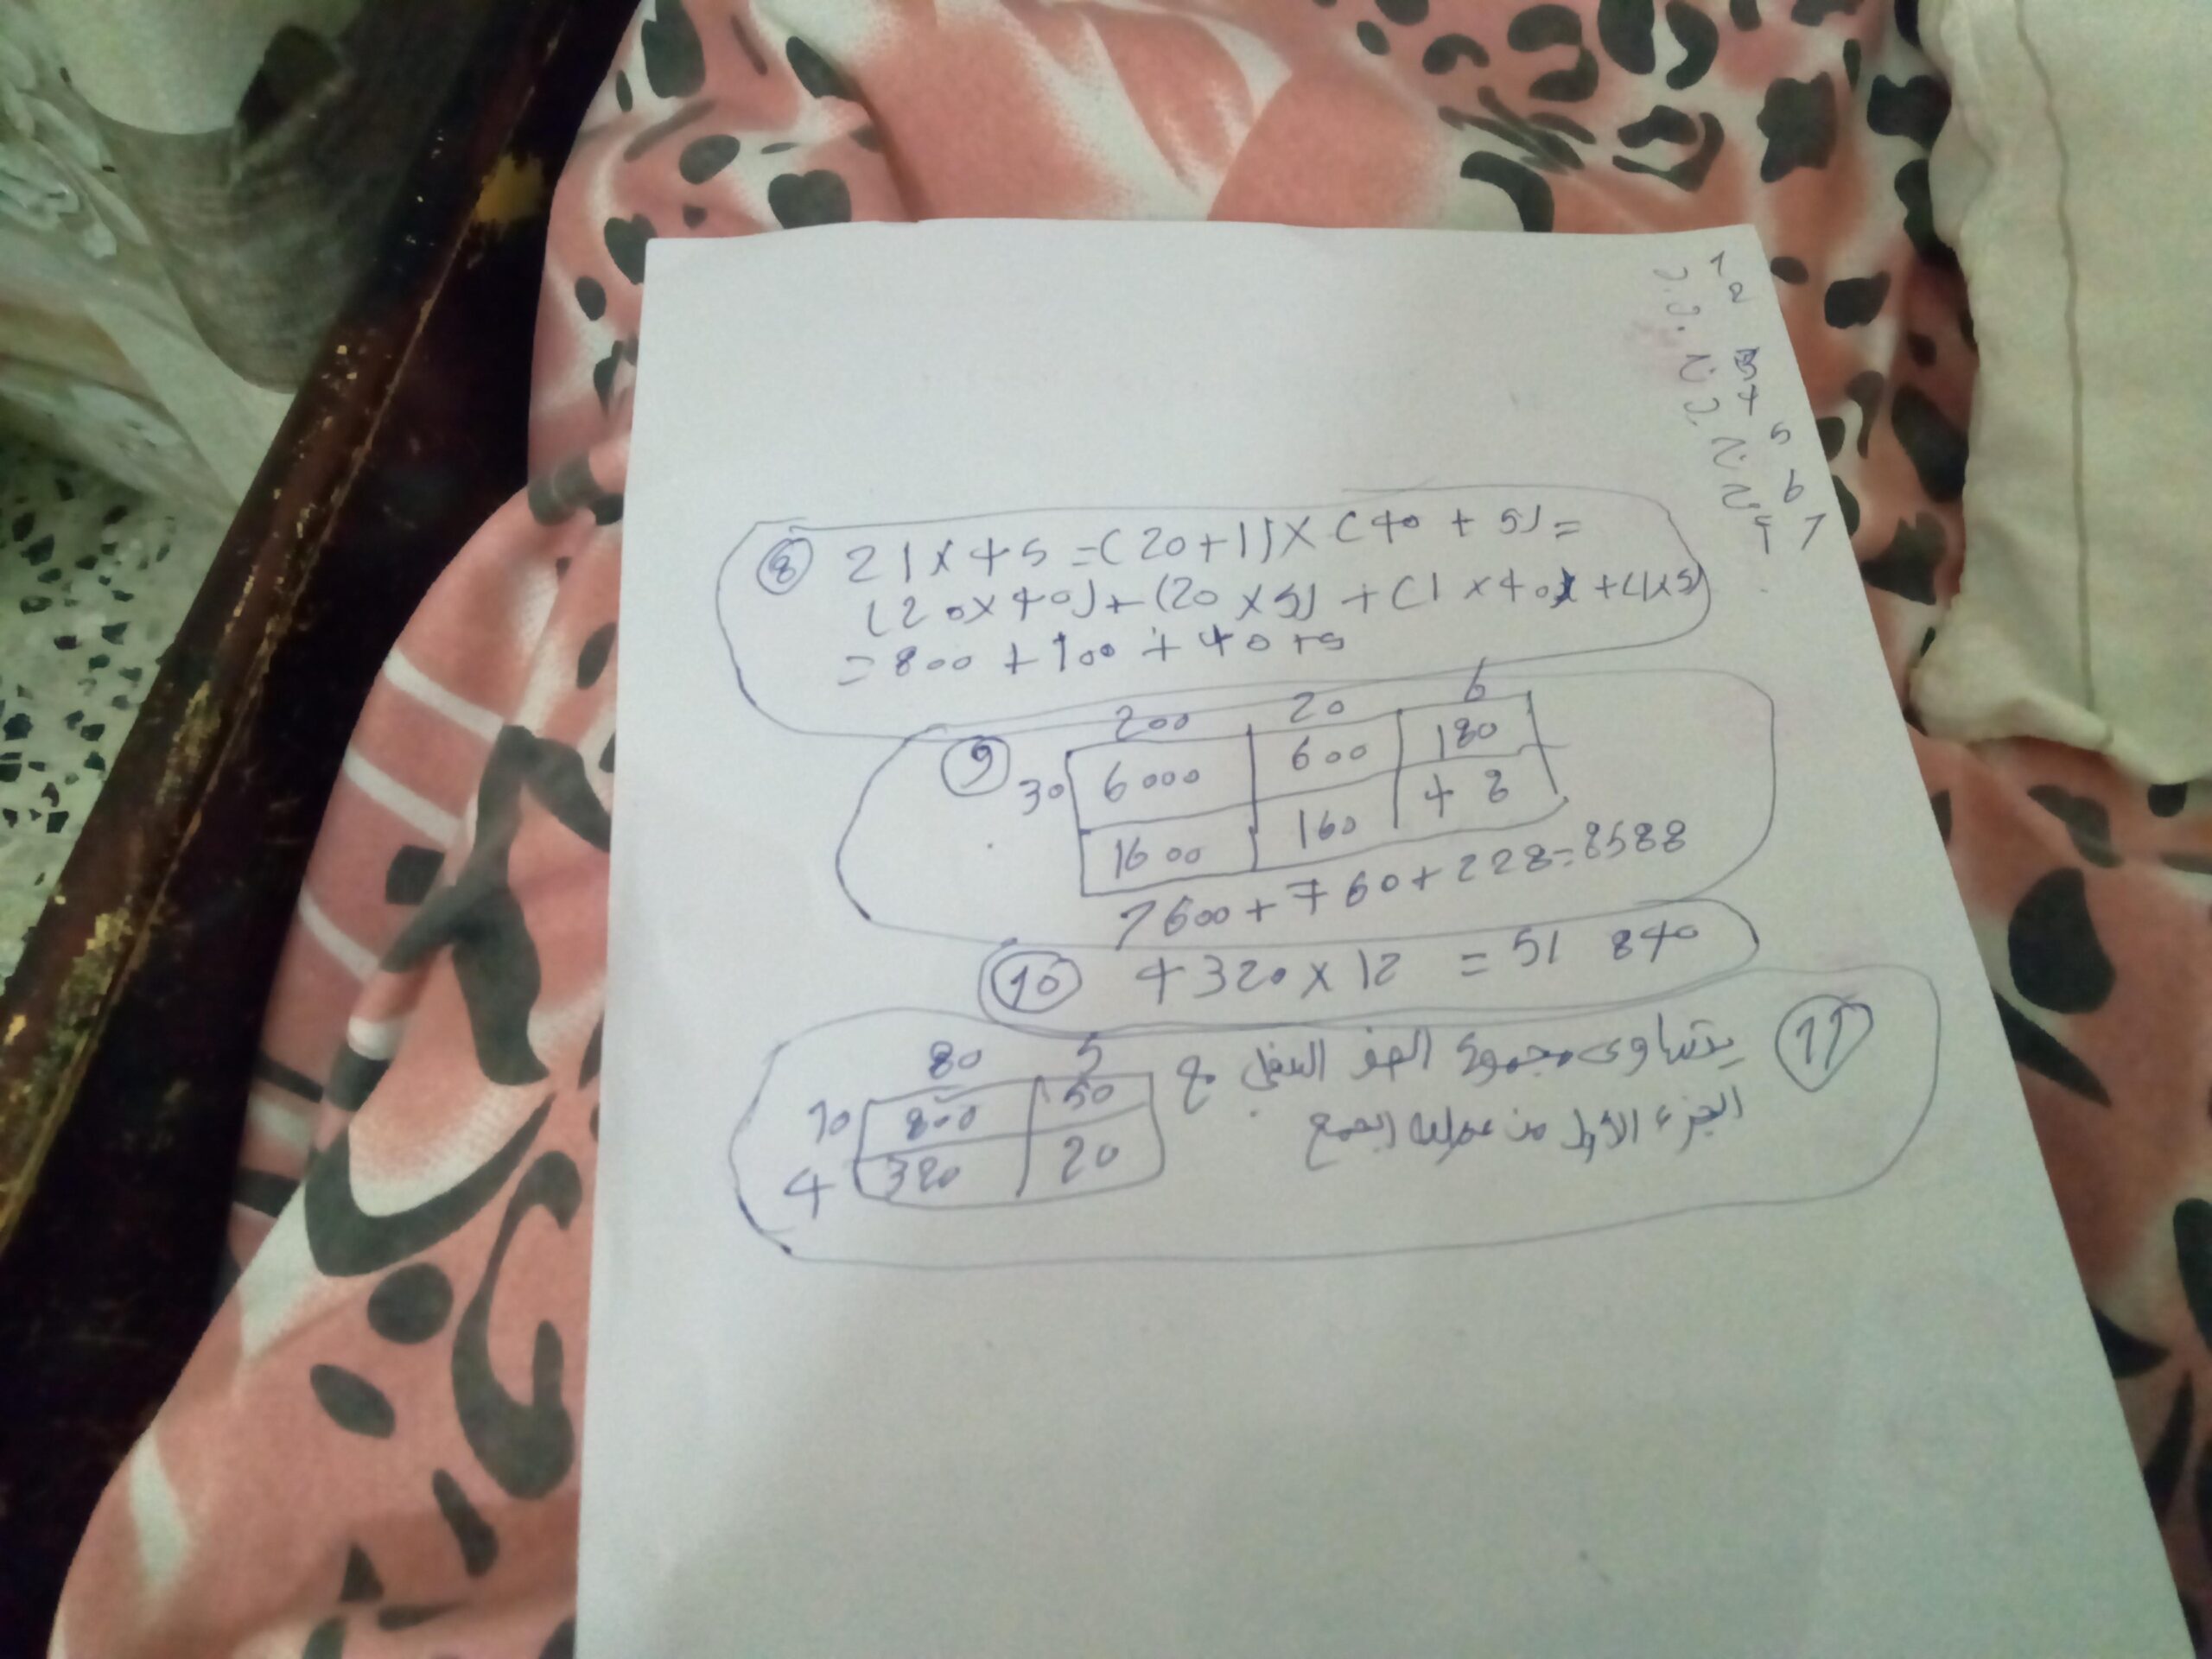 1
2
3
4
5
6
7
8 21 x 45 = (20+1) x (40 + 5) =
(20x40)+(20 x5) + (1 x 40) + (1x5)
= 800 + 100 + 40 + 5
200 20 6
9 30 6000 600 180
1600 160 48
7600 + 760 + 228 = 8588
10 4320 x 12 = 51 840
11 يتساوى مجموع الصف السفلي مع
الجزء الأول من عملية الجمع
80 5
10 800 50
4 320 20